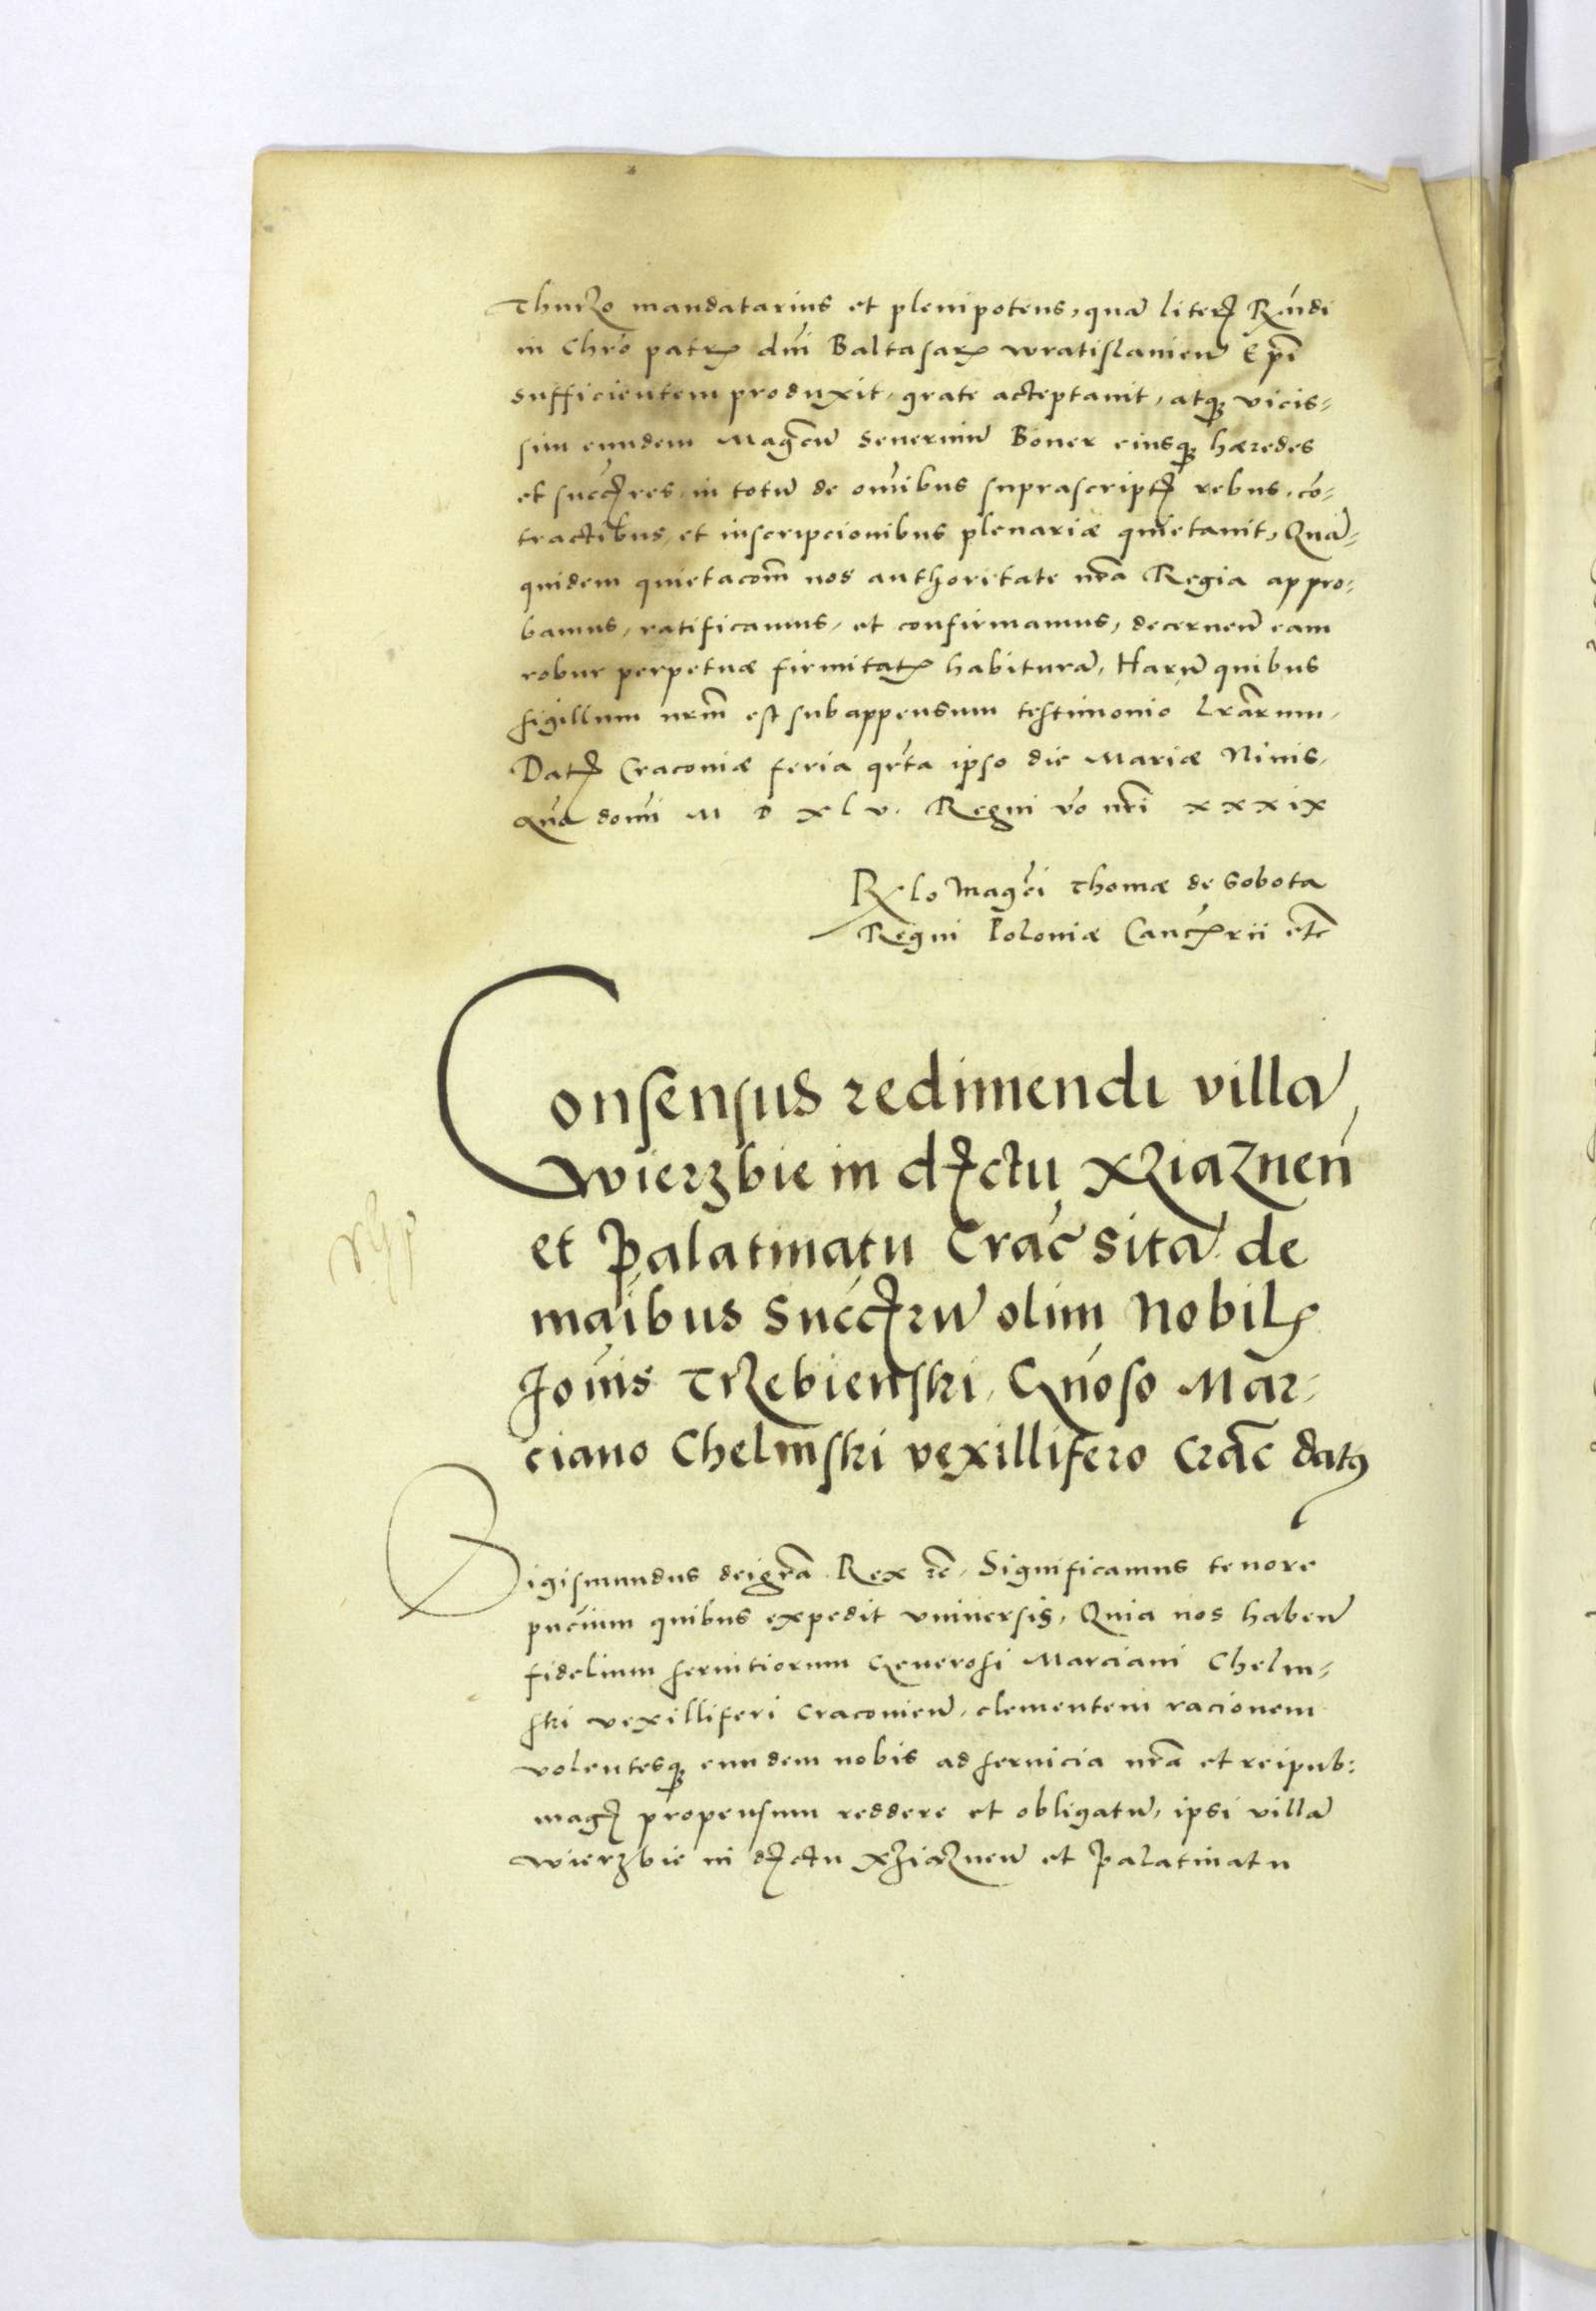 Thurzo mandatarius et plenipotens, qua literꝭ Rn̄di
in Chr̄o patrꝭ dn̄i Baltasarꝭ wratislauien̄ Ep̄i
sufficientem produxit, grate acceptauit, atqꝫ vicis-
sim eundem Mag̃cū Seuerinū Boner eiusqꝫ hæredes
et succꝭres in totū de om̄ibus suprascriptꝭ rebus, cō-
tractibus, et inscripcionibus plenariæ quietauit, Quā-
quidem quietacōm nos authoritate nr̄a Regia appro-
bamus, ratificamus, et confirmamus, decernen̄ eam
robur perpetuæ firmitatꝭ habiturā, Harū quibus
sigillum nr̄m est subappensum testimonio lr̄arum.
Datꝭ Craconiæ feria qr̄ta ipso die Mariæ Niuis,
Año domi M D xlv. Regni v̄o nr̄i xxxix
Rx̄ lo Mag̃ci Thomæ de Sobota
Regni Poloniæ Cancꝭrii etc̄
Consensus redimendi villā
wierzbie in dꝭctu Xziaznen̄
et Palatinatu Crac̄ sitā de
man̄ibus succꝭrū olim Nobilꝭ
Joan̄is Trzebienski, Gn̄oso Mar-
ciano Chelmski vexillifero Crac̄ datꝰ
Sigismundus dei gr̄a Rex ꝛc̄. Significamus tenore
pn̄cium quibus expedit vniuersis, Quia nos haben̄
fidelium seruitiorum Generosi Marciani Chelm-
ski vexilliferi Cracouien̄, clementem racionem
volentesqꝫ eundem nobis ad seruicia nr̄a et reipub:
magꝭ propensum reddere et obligatū, ipsi villā
wierzbie in dꝭctu Xziaznen̄ et Palatinatu